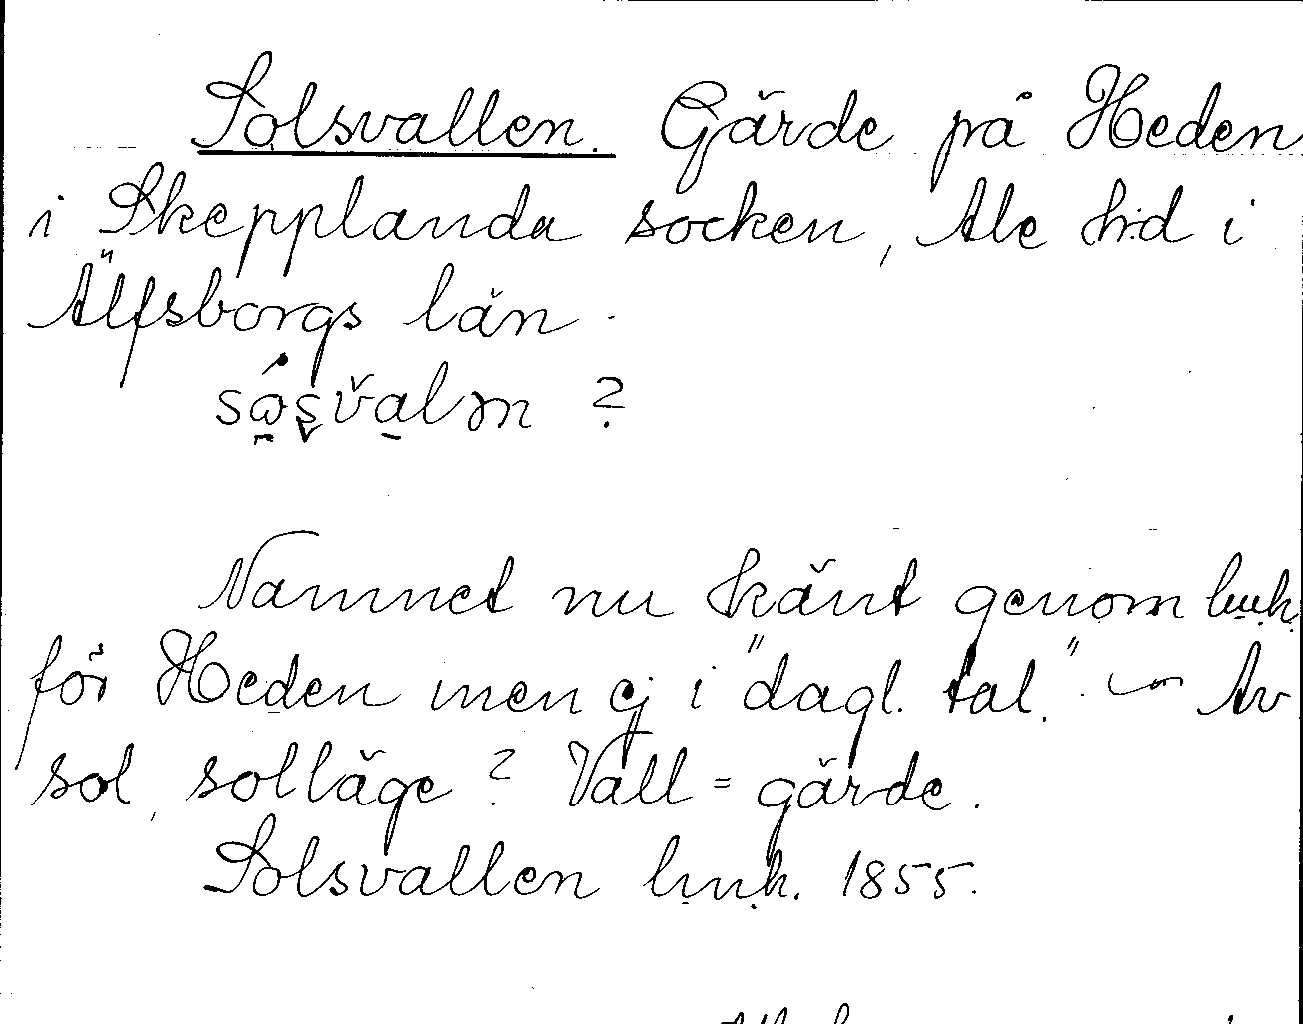 Solsvallen. Gärde på Heden
i Skepplanda socken, Ale hd i
Älfsborgs län.
Namnet nu känt genom lmk.
för Heden men ej i "dagl. tal." — Av
sol, solläge? Vall = gärde.
Solsvallen lmk. 1855.